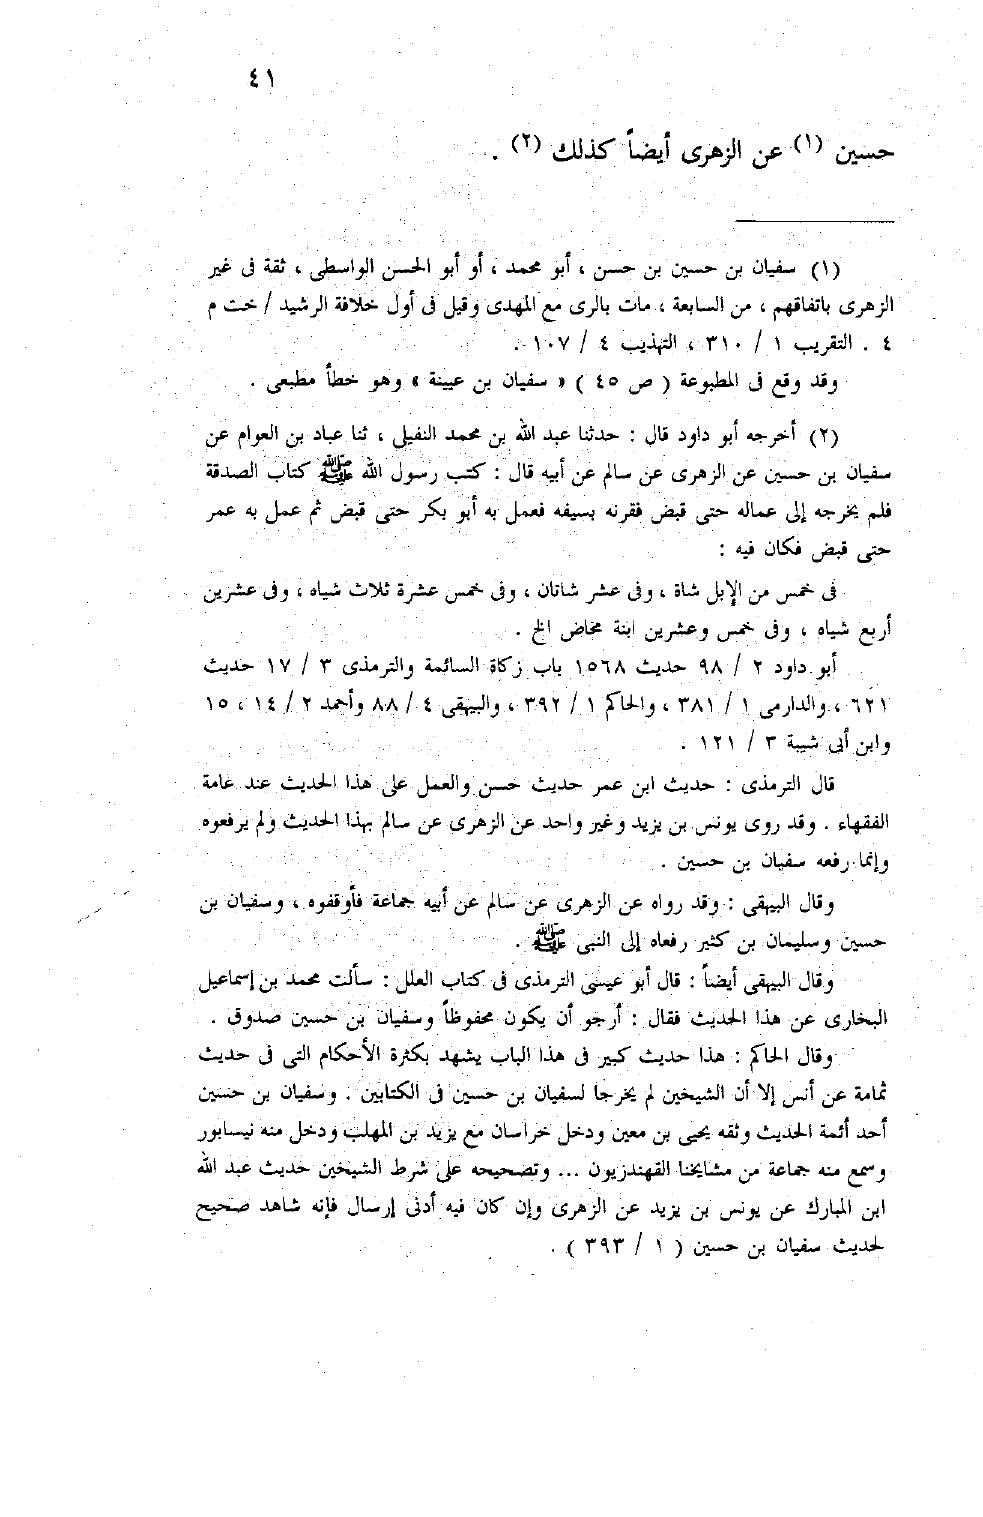 ٤١
حسين (١) عن الزهرى أيضاً كذلك (٢) .
(١) سفيان بن حسين بن حسن ، أبو محمد ، أو أبو الحسن الواسطى ، ثقة فى غير
الزهرى باتفاقهم ، من السابعة ، مات بالرى مع المهدى وقيل فى أول خلافة الرشيد / خت م
٤ . التقريب ١ / ٣١٠ ، التهذيب ٤ / ١٠٧ .
وقد وقع فى المطبوعة ( ص ٤٥ ) « سفيان بن عيينة » وهو خطأ مطبعى .
(٢) أخرجه أبو داود قال : حدثنا عبد الله بن محمد النفيلى ، ثنا عباد بن العوام عن
سفيان بن حسين عن الزهرى عن سالم عن أبيه قال : كتب رسول الله ﷺ كتاب الصدقة
فلم يخرجه إلى عماله حتى قبض فقرنه بسيفه فعمل به أبو بكر حتى قبض ثم عمل به عمر
حتى قبض فكان فيه :
فى خمس من الإبل شاة ، وفى عشر شاتان ، وفى خمس عشرة ثلاث شياه ، وفى عشرين
أربع شياه ، وفى خمس وعشرين ابنة مخاض الخ .
أبو داود ٢ / ٩٨ حديث ١٥٦٨ باب زكاة السائمة والترمذى ٣ / ١٧ حديث
٦٢١ ، والدارمى ١ / ٣٨١ ، والحاكم ١ / ٣٩٢ ، والبيهقى ٤ / ٨٨ وأحمد ٢ / ١٤ ، ١٥
وابن أبى شيبة ٣ / ١٢١ .
قال الترمذى : حديث ابن عمر حديث حسن والعمل على هذا الحديث عند عامة
الفقهاء . وقد روى يونس بن يزيد وغير واحد عن الزهرى عن سالم بهذا الحديث ولم يرفعوه
وإنما رفعه سفيان بن حسين .
وقال البيهقى : وقد رواه عن الزهرى عن سالم عن أبيه جماعة فأوقفوه ، وسفيان بن
حسين وسليمان بن كثير رفعاه إلى النبى ﷺ .
وقال البيهقى أيضاً : قال أبو عيسى الترمذى فى كتاب العلل : سألت محمد بن إسماعيل
البخارى عن هذا الحديث فقال : أرجو أن يكون محفوظاً وسفيان بن حسين صدوق .
وقال الحاكم : هذا حديث كبير فى هذا الباب يشهد بكثرة الأحكام التى فى حديث
ثمامة عن أنس إلا أن الشيخين لم يخرجا لسفيان بن حسين فى الكتابين . وسفيان بن حسين
أحد أئمة الحديث وثقه يحيى بن معين ودخل خراسان مع يزيد بن المهلب ودخل منه نيسابور
وسمع منه جماعة من مشايخنا القهندزيون ... وتصحيحه على شرط الشيخين حديث عبد الله
ابن المبارك عن يونس بن يزيد عن الزهرى وإن كان فيه أدنى إرسال فإنه شاهد صحيح
لحديث سفيان بن حسين ( ١ / ٣٩٣ ) .